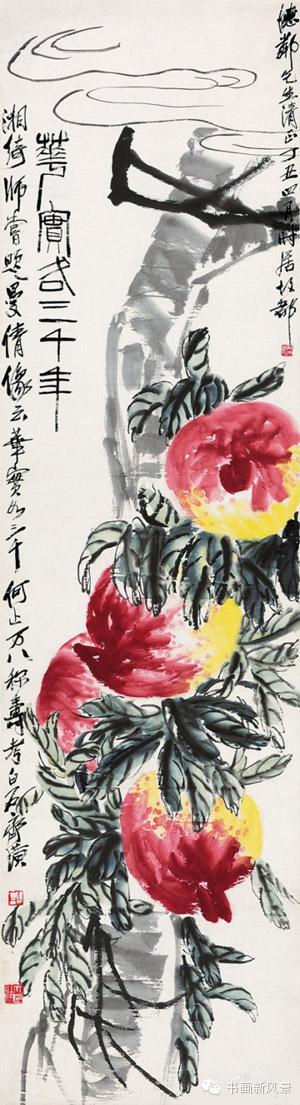 德鄰先生清正丁丑四月時居故都
華實各三千年
湘綺師嘗題曼倩像云華實各三千何止万八稱壽考白石齊璜
书画新风景